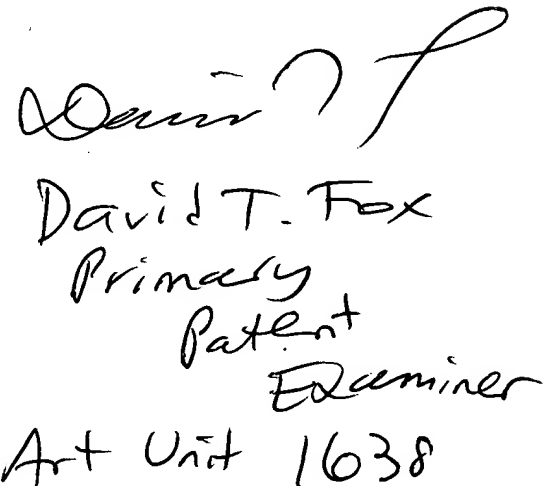 David T. Fox
Primary
Patent
Examiner
Art Unit 1638